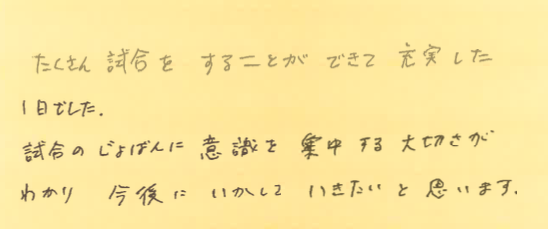 たくさん 試合を することが できて 充実した
1日でした.
試合の じょばんに 意識を 集中する 大切さが
わかり 今後に いかして いきたいと 思います.